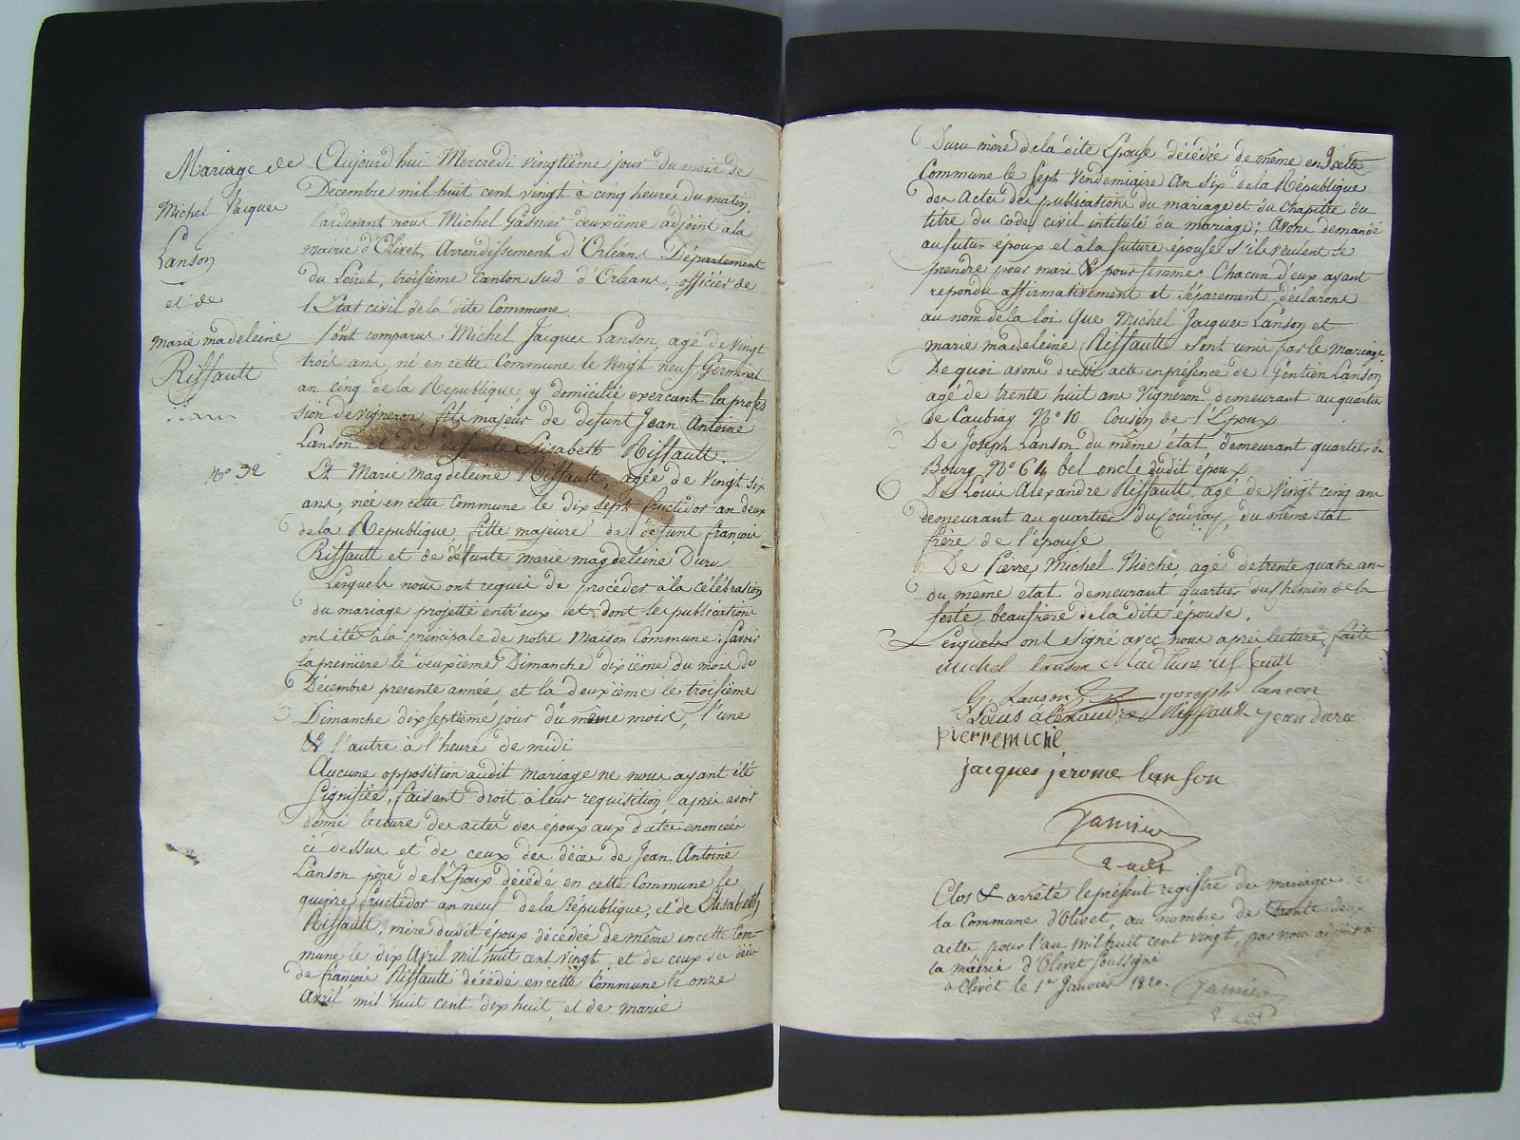 Mariage de
Michel Jacques
Lanson
et de
marie madeleine
Riffault
N° 32
Aujourd'hui Mercredi vingtième jour du mois de
Decembre mil huit cent vingt a cinq heures du matin,
Pardevant nous Michel Gasnier deuxième adjoint a la
mairie d'Olivet, Arrondissement d'Orléans Département
du Loiret, troisième canton sud d'Orléans, officier de
l'Etat civil de la dite Commune
Sont comparus Michel Jacques Lanson, agé de vingt
trois ans, né en cette Commune le vingt neuf Germinal
an cinq de la Republique y domicilié exercant la profes
sion de vigneron, fils majeur de defunt Jean Antoine
Lanson et de Elisabeth Riffault.
Et Marie Magdeleine Riffault, agée de vingt six
ans, née en cette Commune le dix sept fructidor an deux
de la Republique fille majeure de défunt françois
Riffault et de défunte marie magdeleine Duru
Lesquels nous ont requis de procéder à la célébration
du mariage projetté entr'eux et dont les publications
ont été à la principale de notre Maison Commune; Savoir
la première le deuxième Dimanche dixième du mois de
Décembre presente année et la deuxième le troisième
Dimanche dix septième jour du même mois, l'une
& l'autre à l'heure de midi
Aucune opposition audit mariage ne nous ayant été
signifiée, faisant droit à leur requisition, après avoir
donné lecture des actes des époux aux dates énoncées
ci dessus et de ceux des décès de Jean Antoine
Lanson père de l'Epoux décédé en cette Commune le
quinze fructidor an neuf de la République, et de Elisabeth
Riffault, mère dudit époux décédée de même en cette Com-
mune le dix Avril mil huit cent vingt, et de ceux du décès
de françois Riffault décédé en cette Commune le onze
Avril mil huit cent dix huit, et de marie
Duru mère de la dite Epouse décédée de même en cette
Commune le sept Vendemiaire An Six de la République
des Actes des publications du mariage et du chapitre du
titre du code civil intitulé du mariage; avons demandé
au futur epoux et à la future epouse s'ils veulent se
prendre pour mari & pour femme. Chacun d'eux ayant
repondu affirmativement et séparement, déclarons
au nom de la loi que Michel Jacques Lanson et
marie madeleine Riffault sont unis par le mariage
De quoi avons dressé acte en présence de Gentien Lanson
agé de trente huit ans Vigneron demeurant au quartier
de Caubray N° 10 Cousin de l'Epoux
De Joseph Lanson du même état, demeurant quartier du
Bourg N° 64 bel oncle dudit époux
De Louis Alexandre Riffault, agé de vingt cinq ans
demeurant au quartier du Couvray, du même état
frère de l'épouse
De Pierre Michel Miché, agé de trente quatre ans
du même etat demeurant quartier du chemin de la
ferté beaufrère de la dite épouse.
Lesquels ont signé avec nous après lecture faite
michel lanson Madlene riffault
G. Lanson joseph lanson
Louis alexandre Riffault jean duru
pierremiché
jacques jerome lanson
Gasnier
2e adjt
Clos & arrêté le présent registre de mariages de
la Commune d'Olivet, au nombre de trente deux
actes pour l'an mil huit cent vingt, par nous adjoint à
la mairie d'Olivet soussigné
a Olivet le 1er Janvier 1820.
Gasnier
2 adjt